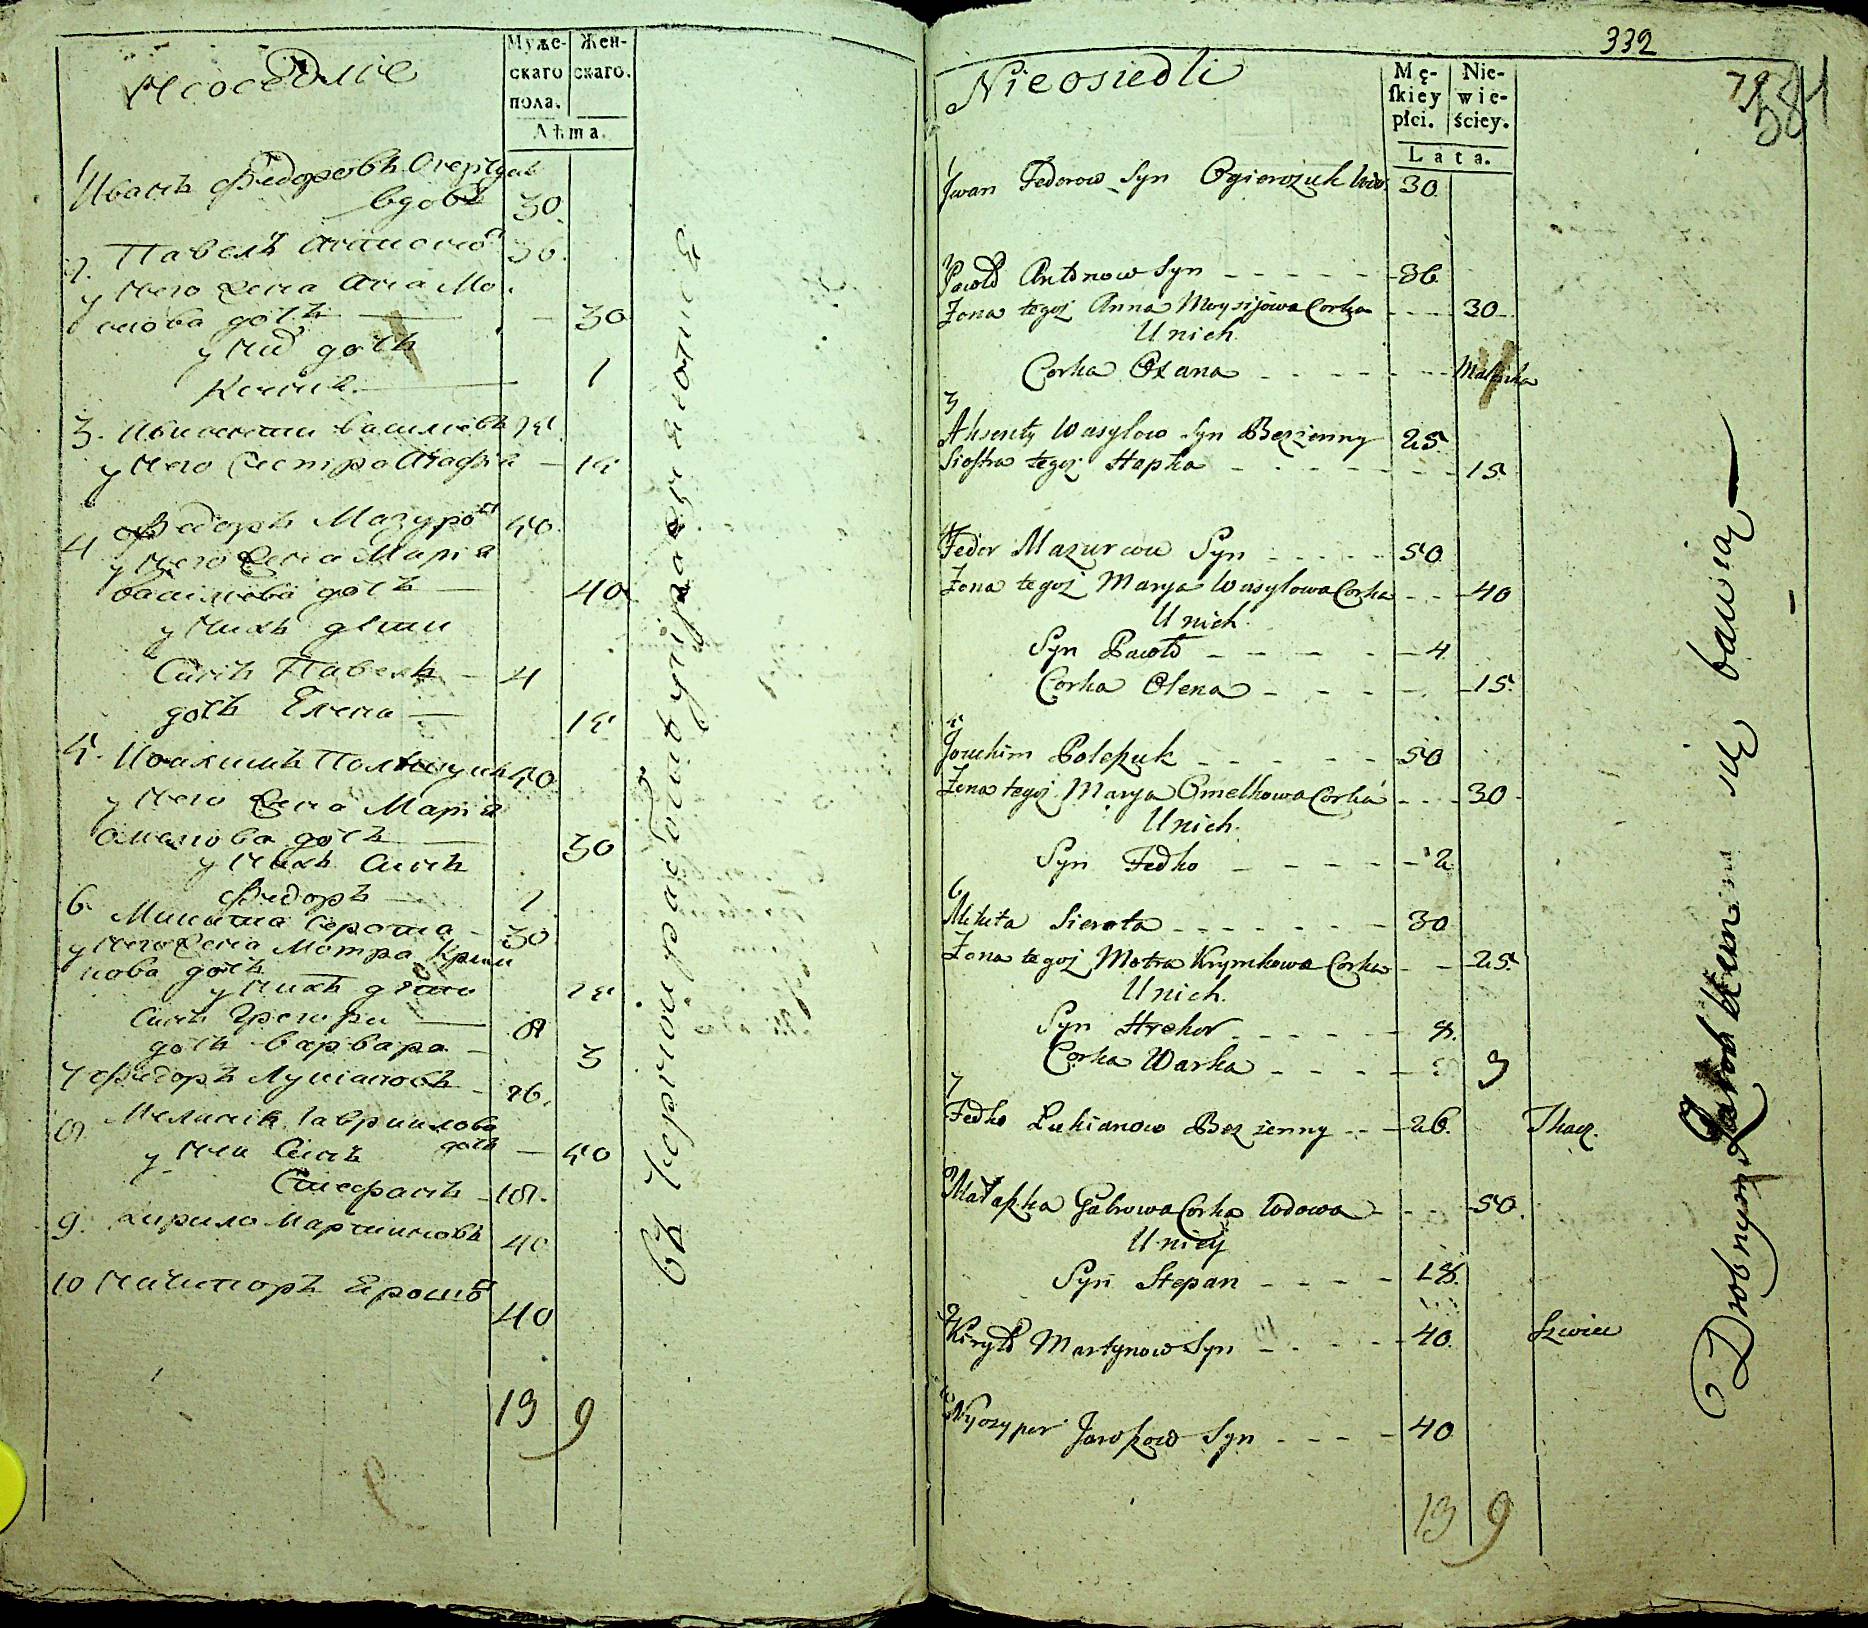 Муже-
скаго
пола.
Жен-
скаго.
Лѣта.
Неоседлие
1
Иванъ Федоровъ
вдовъ 30.
2. Павелъ 36.
у него жена Анна Мо
сиова дочь — 30
дочь
1
3. Василиевъ 25
у него сестра Агафия — 15
4 Федоръ Мазуровъ 50.
у него жена Мария
Василиова дочь — 40
у нихъ дети
Синъ Павелъ — 4
дочь Елена — 15
5. Иоахимъ Полещукъ 50
у него жена Мария
дочь — 30
у нихъ Синъ
Федоръ — 2
6. Микита Серота — 30
у него жена Мотра Крим
кова дочь — 25
у нихъ дети
Синъ Григори — 8
дочь Варвара — 3
7 Федоръ Лукиановъ — 26.
8. Мелания Гавриилова
дочь — 50
у неи Синъ
Стефанъ — 18.
9. Кирило Мартиновъ 40
10 Никипоръ 40
19 9
въ черной работи упражняются
332
79
581
Nieosiedli
Mę-
skiey
płci.
Nie-
wie-
ściey.
Lata.
1
Jwan Fedorow Syn Ogierczuk Wdo: 30
2
Pawło Antonow Syn - - - - - 36.
Zona tegoż Anna Moysijowa Corka - - - 30
U nich
Corka Oxana - - - - - - Malenka
3
Aksenty Wasylow Syn Bezżenny 25.
Siostra tegoż Hapka - - - - - - 15
4
Fedor Mazurow Syn - - - - - 50
Zona tegoż Marya Wasylowa Corka - - - 40
U nich
Syn Pawło - - - - - 4
Corka Olena - - - - - 15.
5
Joachim Poleszuk - - - - - 50
Zona tegoż Marya Omelkowa Corka - - - 30
U nich.
Syn Fedko - - - - - 2
6
Mikita Sierota - - - - - - 30
Zona tegoż Motra Krymkowa Corka - - - 25.
U nich.
Syn Hrehor - - - - - 8.
Corka Warka - - - - 3
7
Fedko Łukianow Bezżenny - - - 26. Tkacz.
8
Małaszka Gabrowa Corka Wdowa - - - 50.
U niey
Syn Stepan - - - - 18.
9
Kiryło Martynow Syn - - - - 40. Szwiec
10
Nyczypor Jaroszow Syn - - - - 40
19 9
Drobnym Zarobkiem się bawią —